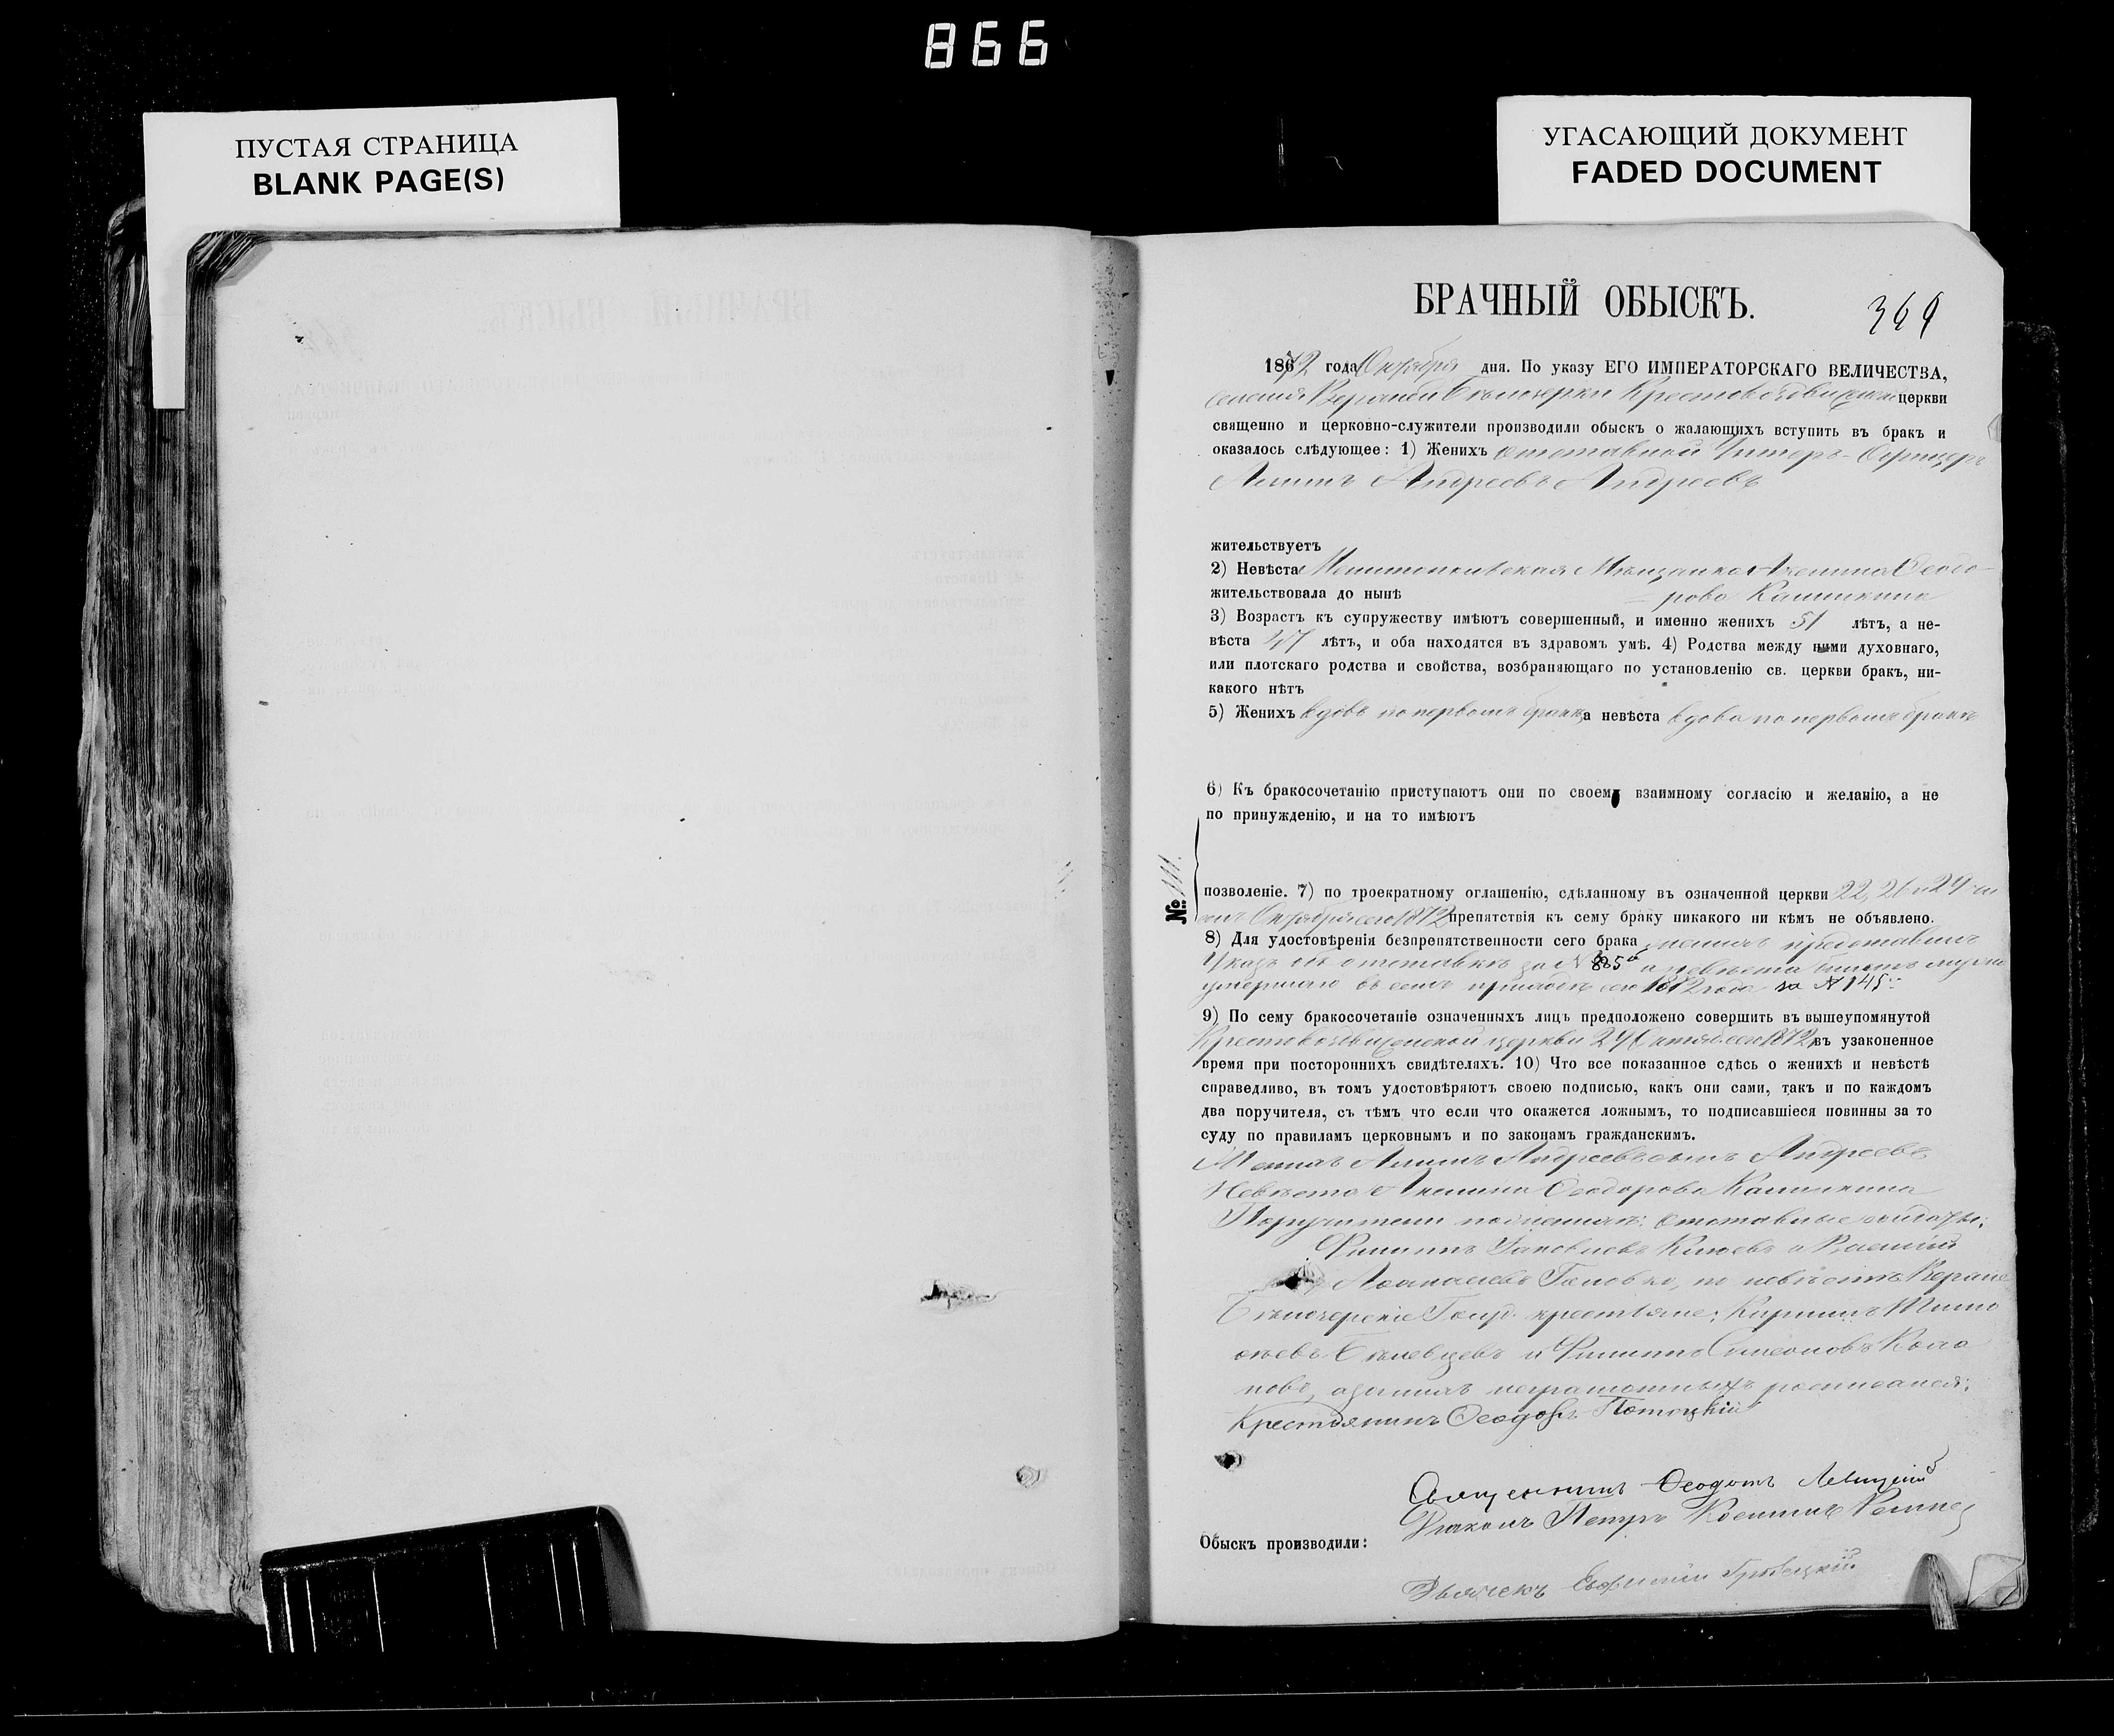 866
ПУСТАЯ СТРАНИЦА
BLANK PAGE(S)
УГАСАЮЩИЙ ДОКУМЕНТ
FADED DOCUMENT
БРАЧНЫЙ ОБЫСКЪ.
1872 года Октября дня. По указу ЕГО ИМПЕРАТОРСКАГО ВЕЛИЧЕСТВА,
селенія Верхней Бѣлозерки Крестовоздвиженской церкви
священно и церковно-служители производили обыскъ о жалающихъ вступить въ бракъ и
оказалось слѣдующее: 1) Женихъ отставной Унтеръ-Офицеръ
Андреевъ Андреевъ
жительствуетъ
2) Невѣста Мелитопольская Мѣщанка Акелина Ѳеодо-
жительствовала до нынѣ рова Калишкина
3) Возрастъ къ супружеству имѣютъ совершенный, и именно женихъ 51 лѣтъ, а не-
вѣста 47 лѣтъ, и оба находятся въ здравомъ умѣ. 4) Родства между ними духовнаго,
или плотскаго родства и свойства, возбраняющаго по установленію св. церкви бракъ, ни-
какого нѣтъ
5) Женихъ вдовъ по первомъ бракѣ, а невѣста вдова по первомъ бракѣ
6) Къ бракосочетанію приступаютъ они по своему взаимному согласію и желанію, а не
по принужденію, и на то имѣютъ
№ 111.
позволеніе. 7) по троекратному оглашенію, сдѣланному въ означенной церкви 22, 26 и
Октября сего 1872 препятствія къ сему браку никакого ни кѣмъ не объявлено.
8) Для удостовѣренія безпрепятственности сего брака женихъ представилъ
Указъ объ отставкѣ за № а невѣста билетъ мужа
умершаго въ семъ приходѣ сего 1872 года за № 145
9) По сему бракосочетаніе означенныхъ лицъ предположено совершить въ вышеупомянутой
Крестовоздвиженской церкви Октября сего 1872 въ узаконенное
время при постороннихъ свидѣтеляхъ. 10) Что все показанное сдѣсь о женихѣ и невѣстѣ
справедливо, въ томъ удостовѣряютъ своею подписью, какъ они сами, такъ и по каждомъ
два поручителя, съ тѣмъ что если что окажется ложнымъ, то подписавшіеся повинны за то
суду по правиламъ церковнымъ и по законамъ гражданскимъ.
Женихъ Андреевъ
Невѣста Акелина Ѳеодорова Калишкина
Поручители по женихѣ: отставные солдаты:
Филиппъ Яковлевъ и Василій
Головко, по невѣстѣ Верхне
Бѣлозерскіе Госуд. крестьяне: Кириллъ Тимо
и Филиппъ Симеоновъ
новъ, а за нихъ неграмотныхъ росписался:
Крестьянинъ Ѳеодоръ Потоцкій
Священникъ Ѳеодотъ Левицкій
Петръ
Обыскъ производили:
Дьячекъ Евфимій